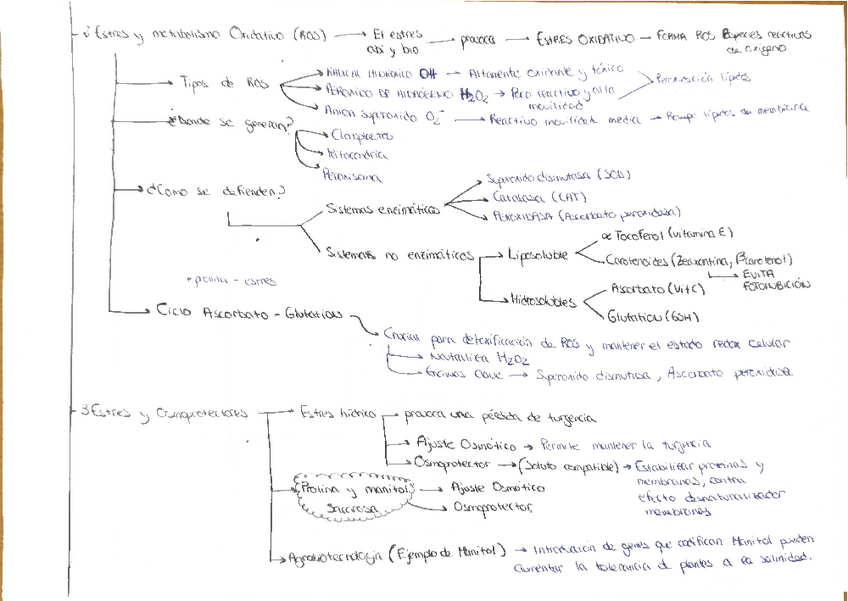 2 Estres y metabolismo Oxidativo (ROS) → El estres abi y bio → provoca → ESTRES OXIDATIVO → FORMA ROS Especies reactivas de oxigeno
Tipos de ROS
RADICAL HIDROXILO OH → Altamente oxidante y tóxico
PEROXIDO DE HIDRÓGENO H2O2 → Poco reactivo y alta movilidad
Peroxidación lípidos
Anion Superoxido O2- → Reactivo movilidad media → Rompe lípidos de membrana
¿Donde se generan?
Cloroplastos
Mitocondria
Peroxisoma
¿Como se defienden?
Sistemas enzimáticos
Superoxido dismutasa (SOD)
Catalasa (CAT)
PEROXIDASA (Ascorbato peroxidasa)
Sistemas no enzimáticos
Liposoluble
α Tocoferol (vitamina E)
Carotenoides (Zeaxantina, βcarotenol)
EVITA FOTOINIBICIÓN
Hidrosolubles
Ascorbato (Vit C)
Glutation (GSH)
+ prolina - estres
Ciclo Ascorbato - Glutation
Crucial para detoxificación de ROS y mantener el estado redox celular
Neutraliza H2O2
Enzimas clave → Superoxido dismutasa, Ascorbato peroxidasa
3 Estres y Osmoprotectores
Estres hídrico → provoca una pérdida de turgencia
Ajuste Osmótico → Permite mantener la turgencia
Osmoprotector → (Soluto compatible) → Estabilizar proteinas y membranas, contra efecto desnaturalizador membranas
Prolina y manitol Sacarosa
Ajuste Osmótico
Osmoprotector
Agrobiotecnología (Ejemplo de Manitol) → Introducion de genes que codifican Manitol pueden aumentar la tolerancia de plantas a la salinidad.